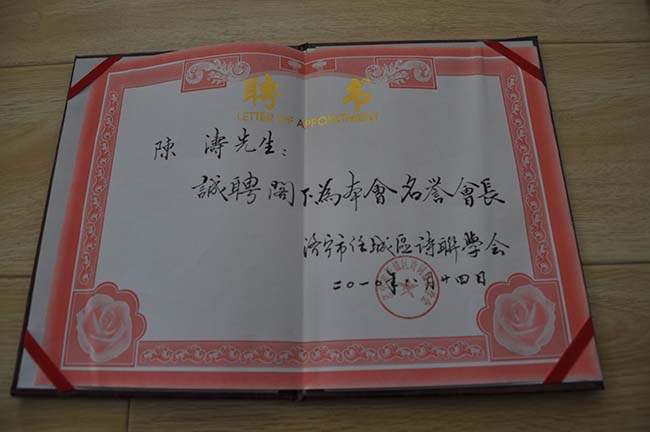 聘 书
LETTER OF APPOINTMENT
陳 濤先生：
誠聘閣下為本會名誉會長
济宁市任城區詩聯學会
二〇一〇年八月廿四日